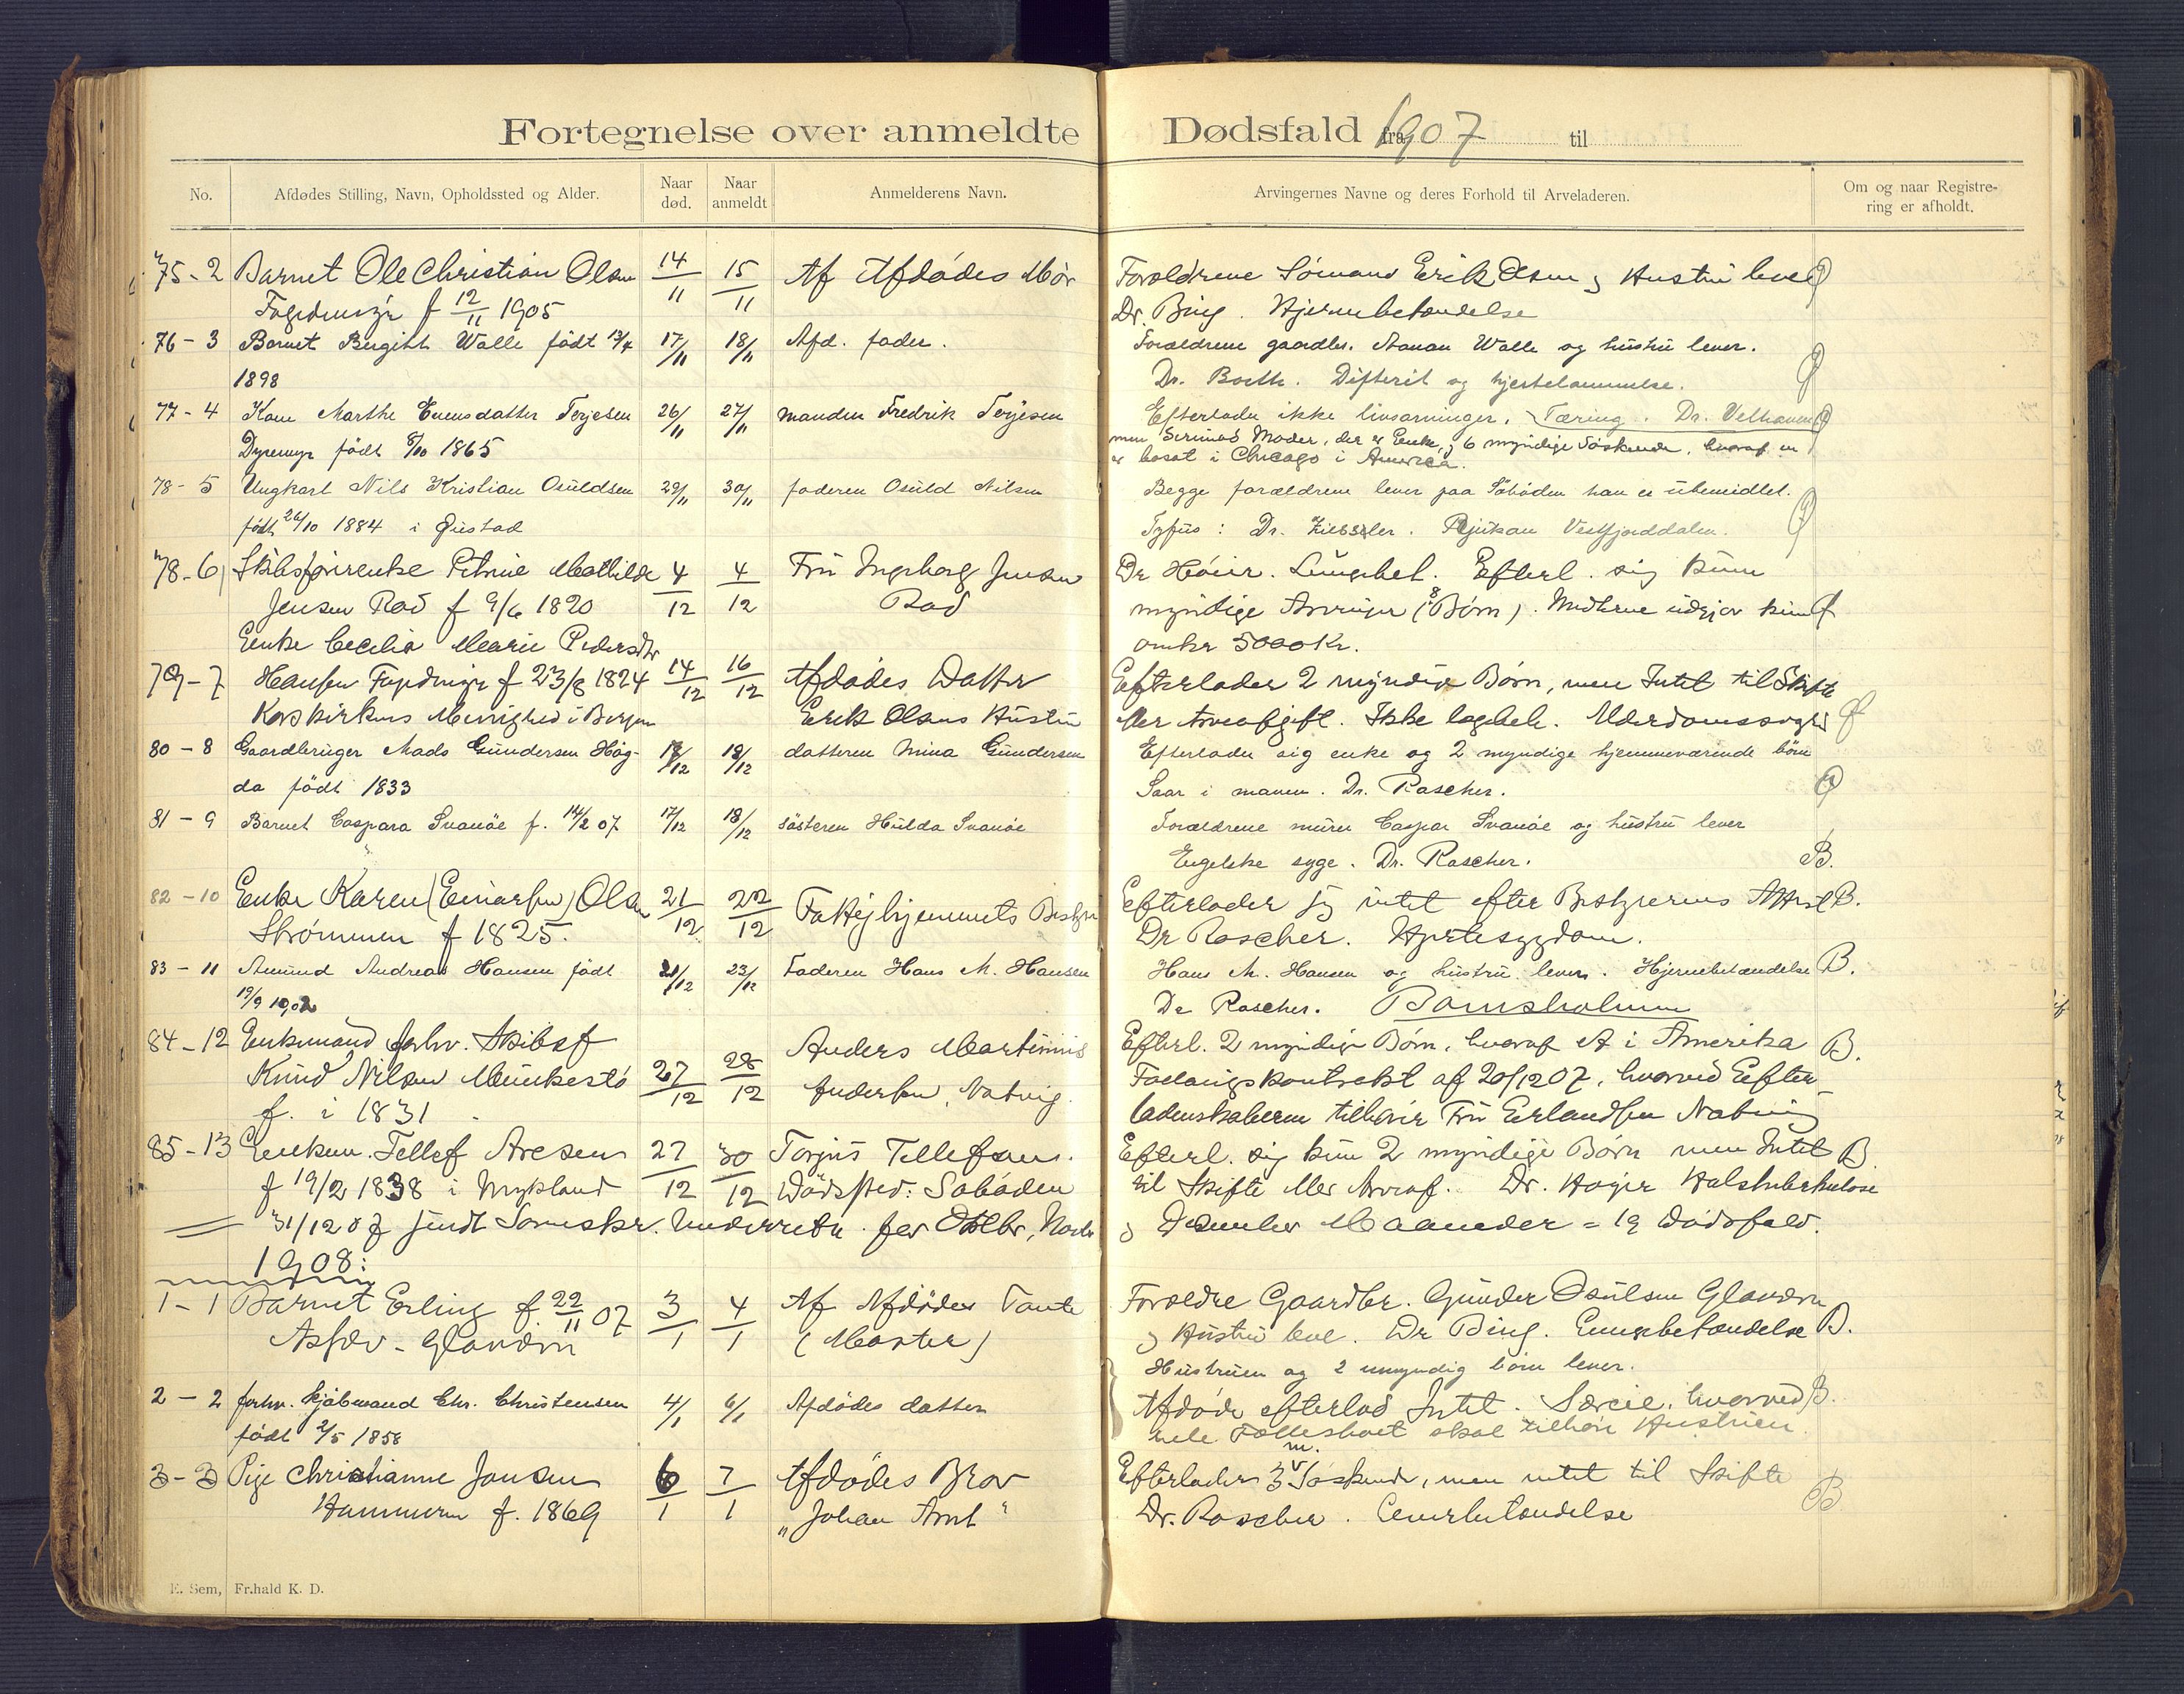 Fortegnelse over anmeldte Dødsfald fra 1907 til
No. Afdødes Stilling, Navn, Opholdssted og Alder. Naar død. Naar anmeldt Anmelderens Navn. Arvingernes Navne og deres Forhold til Arveladeren. Om og naar Registrering er afholdt.
75-2 Barnet Ole Christian Olsen 14/11 15/11 Af Afdødes Mor Forældrene Sømand Erik Olsen og Hustru leve
f 12/11 1905 Dr. Bing. Hjernebetændelse
76-3 Barnet Bergith Walle født 13/4 17/11 18/11 Afd. fader. Forældrene gaardbr. Aanan Walle og hustru lever.
1898 Dr. Booth. Difterit og hjertelammelse.
77-4 Kone Marthe Evensdatter Terjesen 26/11 27/11 manden Fredrik Terjesen Efterlader ikke livsarvinger. Tæring. Dr. Velhaven
Dyremyr født 8/10 1865 men Moder, der er Enke, og 6 myndige Søskende, hvoraf en
er bosat i Chicago i America.
78-5 Ungkarl Nils Kristian Osuldsen 29/11 30/11 faderen Osuld Nilsen Begge forældrene lever paa Søbøden han er ubemidlet.
født 26/10 1884 i Øiestad Tyfus: Dr. Rjukan Vestfjorddalen.
78-6 Skibsførerenke Petrine Mathilde 4/12 4/12 Fru Ingeborg Jensen Dr Høier. Lungebet. Efterl. sig kun
Jensen Rød f 9/6 1820 Rød myndige Arvinger (8 Børn). Midlerne udgjør kun
omkr 5000 Kr.
Enke Cecilia Marie Pedersdtr
79-7 Hansen f 23/8 1824 14/12 16/12 Afdødes Datter Efterlader 2 myndige Børn, men Intet til Skifte
Korskirkens Menighed i Bergen Erik Olsens Hustru eller Arveafgift. Ikke lægbeh. Alderdomssvaghed
80-8 Gaardbruger Mads Gundersen Høg- 18/12 18/12 datteren Mina Gundersen Efterlader sig enke og 2 myndige hjemmeværende børn
da født 1833 Saar i maven. Dr. Rascher.
81-9 Barnet Caspara Svanøe f. 14/2 07 17/12 18/12 søsteren Hulda Svanøe Forældrene murer Caspar Svanøe og hustru lever
Engelske syge. Dr. Rascher. B.
82-10 Enke Karen (Einarsen) Olsen 21/12 22/12 Fattighjemmets Bestyrer Efterlader sig intet efter Bestyrerens Attest B.
Strømmen f 1825. Dr Rascher. Hjertesygdom.
83-11 Amund Andreas Hansen født 21/12 23/12 Faderen Hans M. Hansen Hans M. Hansen og hustru lever. Hjernebetændelse B.
19/9 1902 Dr Rascher.
84-12 Enkemand forhv. Skibsf Anders Martinius Efterl. 2 myndige Børn, hvoraf et i Amerika B.
Knud Nilsen Munkestø 27/12 28/12 Andersen, Natvig. Føderaadskontrakt af 20/12 07, hvorved Efter-
f. i 1831 ladenskaberne tilhører Fru Erlandsen Natvig
85-13 Enkem. Tellef Aresen 27/12 30/12 Torjus Tellefsen. Efterl. sig kun 2 myndige Børn men Intet B
f 19/2 1838 i Mykland Dødssted: Søbøden til Skifte eller Arveaf. Dr. Høyer Halstuberkulose
31/12 07 sendt Sorenskr. for Oktbr, Novbr og December Maaneder = 19 Dødsfald.
1908:
1-1 Barnet Erling f. 22/11 07 3/1 4/1 Af Afdødes Tante Forældre Gaardbr. Gunder Osulsen
(Moster) og Hustru leve. Dr Bing. Lungebetændelse B.
Hustruen og 2 umyndig børn lever.
2-2 forhv. Chr. Christensen 4/1 6/1 Afdødes datter Afdøde efterlod Intet. hvorved B.
født 2/5 1858 hele Fællesboet skal tilhøre Hustruen
3-3 Pige Christianne Jansen 6/1 7/1 Afdødes Bror Efterlader 3 m. Søskende, men intet til Skifte
f. 1869 "Johan Arnt" Dr. Rascher. Lungebetændelse B
E. Sem, Fr.hald K. D.